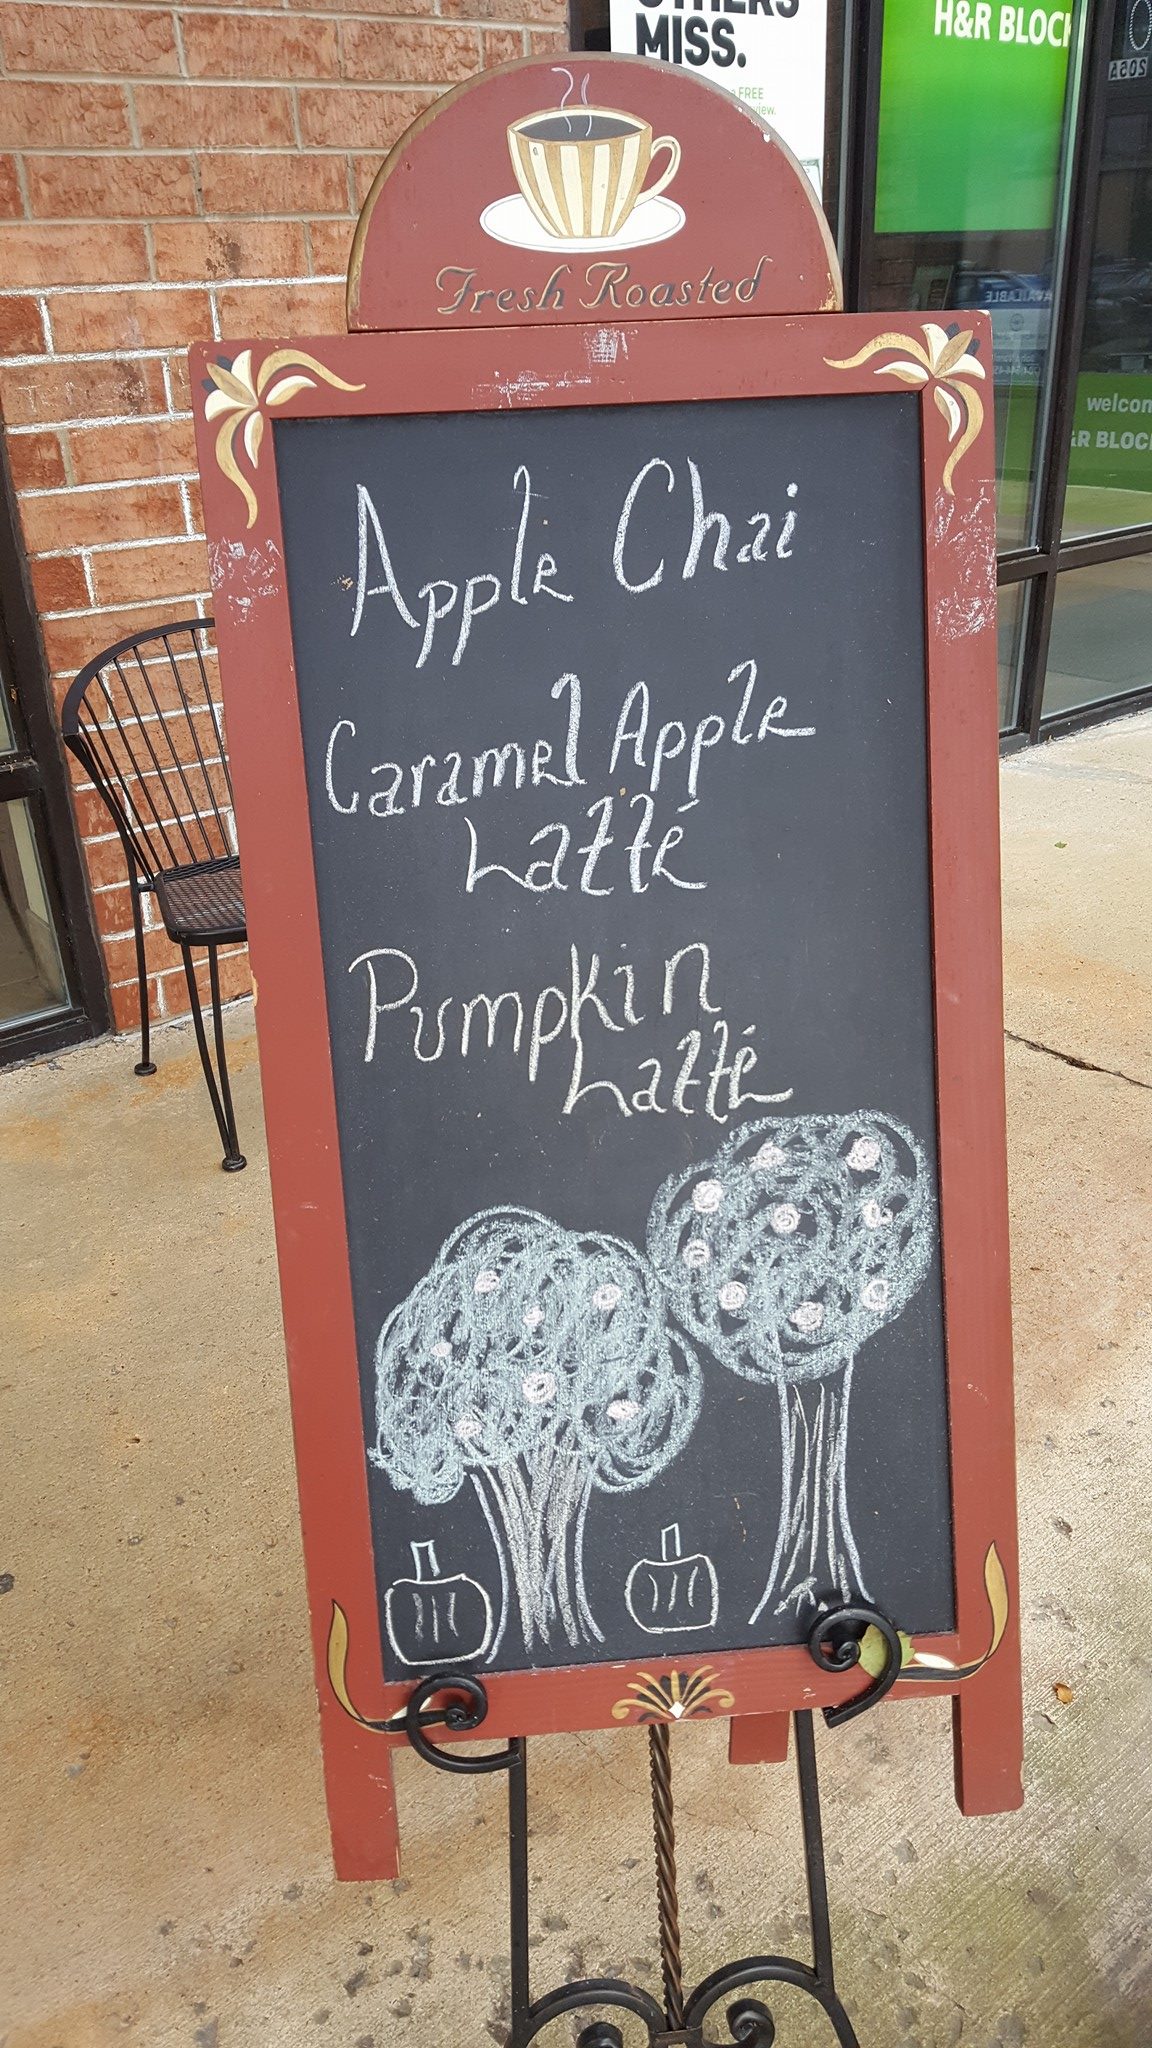 MISS.
FREE
H&R BLOCK
205A
AVAILABLE
Fresh Roasted
Apple Chai
Caramel Apple
Latté
Pumpkin
Latté